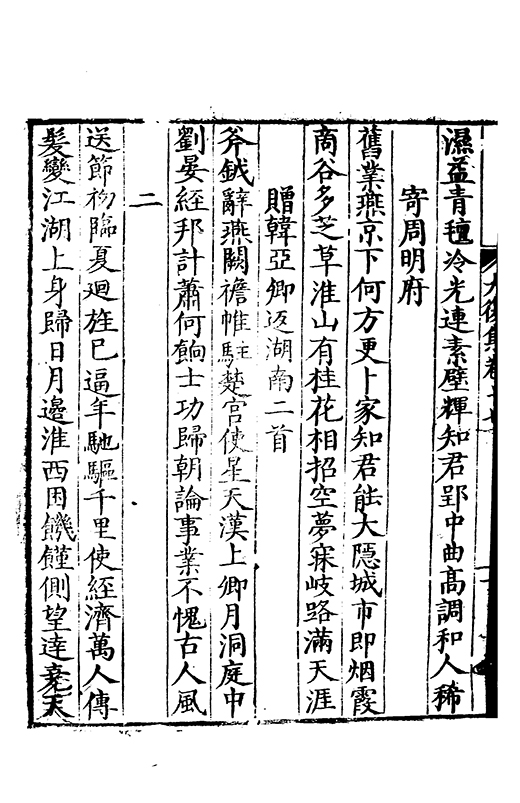 濕益青氊冷光連素壁輝知君郢中曲高調和人稀
寄周明府
舊業燕京下何方更卜家知君能大隱城市即烟霞
商谷多芝草淮山有桂花相招空夢寐岐路滿天涯
贈韓亞卿返湖南二首
斧鉞辭燕闕襜帷駐楚宮使星天漢上卿月洞庭中
劉晏經邦計蕭何餉士功歸朝論事業不愧古人風
二
送節初臨夏迴旌已逼年馳驅千里使經濟萬人傳
髮變江湖上身歸日月邊淮西困饑饉側望達堯天
大復集卷十七